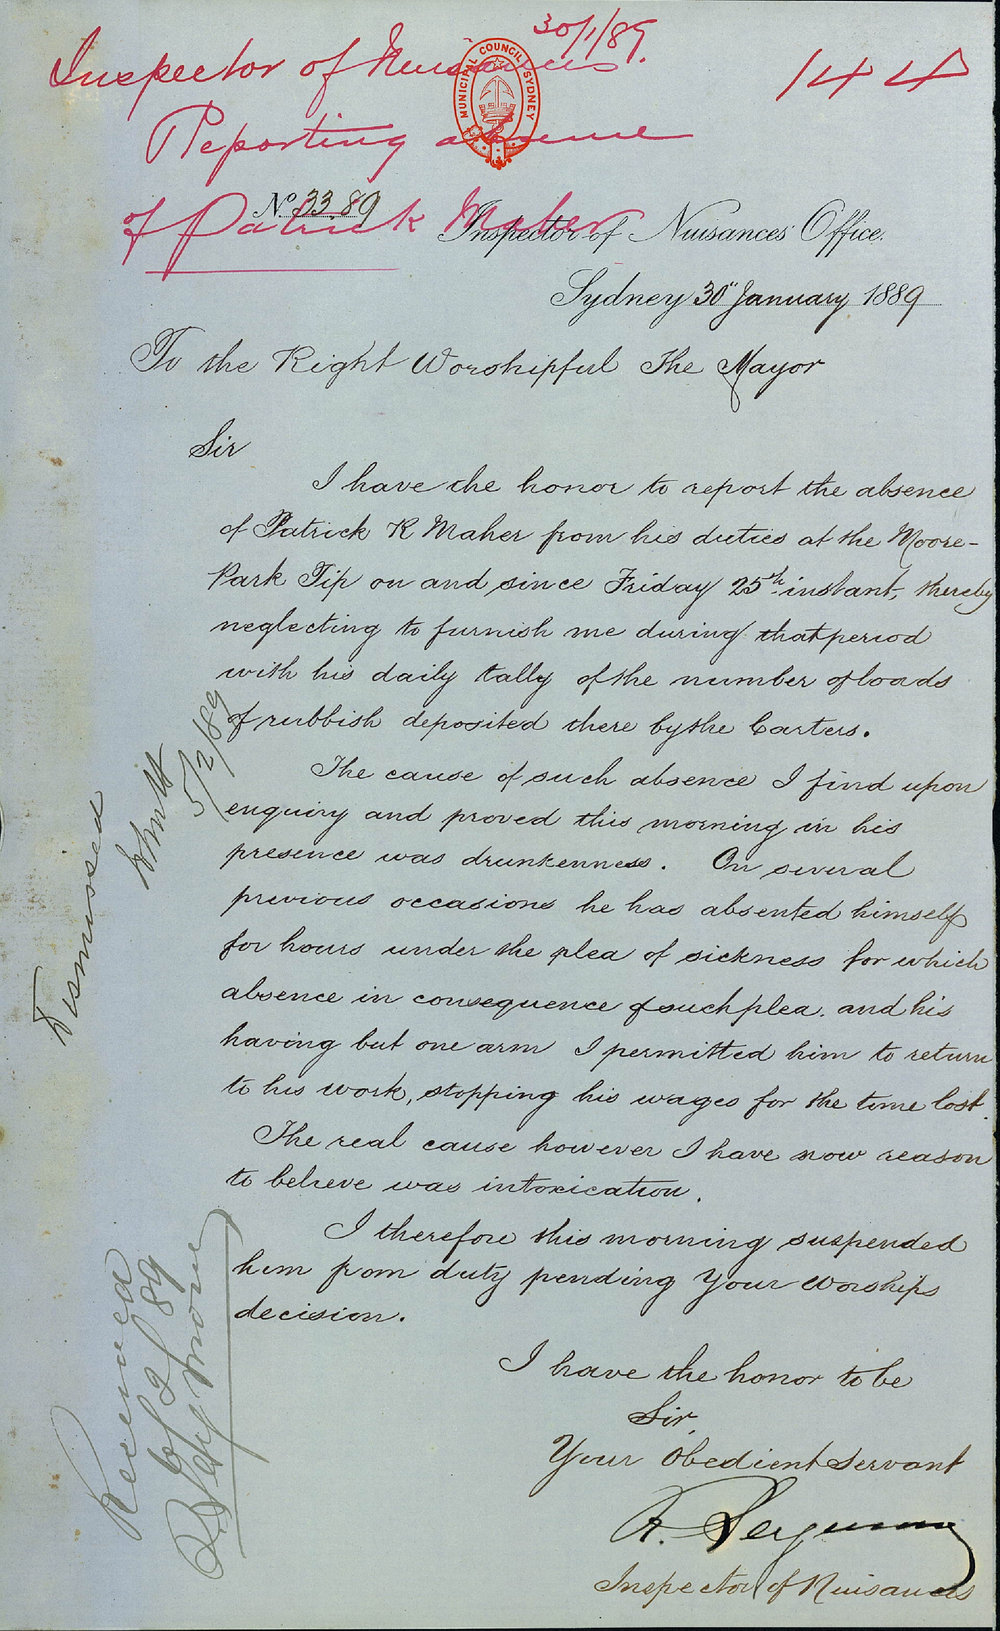 30/1/89.
Inspector of Nuisances
144
MUNICIPAL COUNCIL SYDNEY
Reporting absence
of Patrick Maher
No. 33.89
Inspector of Nuisances' Office.
Sydney 30" January 1889
To the Right Worshipful The Mayor
Sir
I have the honor to report the absence
of Patrick K Maher from his duties at the Moore-
Park Tip on and since Friday 25th instant, thereby
neglecting to furnish me during that period
with his daily tally of the number of loads
of rubbish deposited there by the Carters.
The cause of such absence I find upon
enquiry and proved this morning in his
presence was drunkenness. On several
previous occasions he has absented himself
for hours under the plea of sickness for which
absence in consequence of such plea. and his
having but one arm I permitted him to return
to his work, stopping his wages for the time lost.
The real cause however I have now reason
to believe was intoxication.
I therefore this morning suspended
him from duty pending Your Worships
decision.
I have the honor to be
Sir,
Your Obedient Servant
R. Seymour
Inspector of Nuisances
Dismissed
5/2/89
Received
6/2/89
R. Seymour